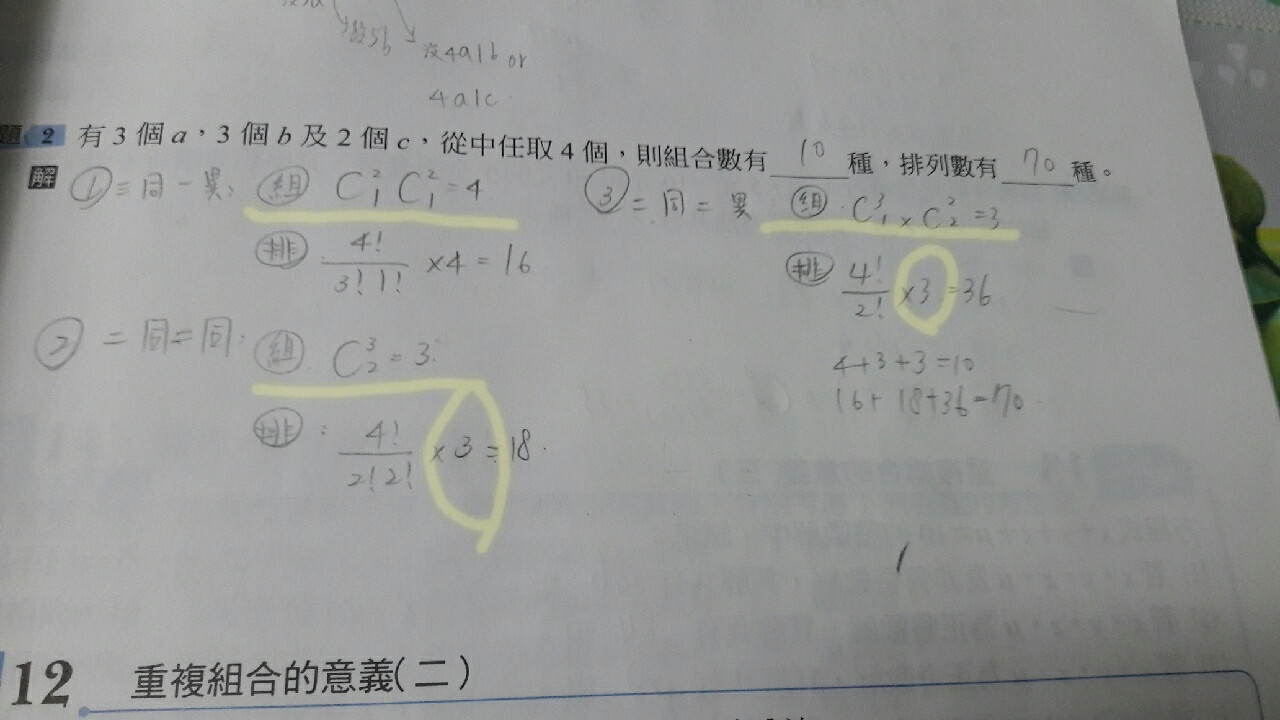 没4a1b or
4a1c
題 2 有 3 個 a，3 個 b 及 2 個 c，從中任取 4 個，則組合數有 10 種，排列數有 70 種。
解 ① 三同一異: 組 C²₁ C²₁ = 4
排 4!/3!1! ×4 = 16
② 二同二同: 組 C³₂ = 3
排: 4!/2!2! ×3 = 18
③ 二同二異 組 C³₁ × C²₂ = 3
排 4!/2! ×3 = 36
4+3+3=10
16+18+36=70
12 重複組合的意義(二)